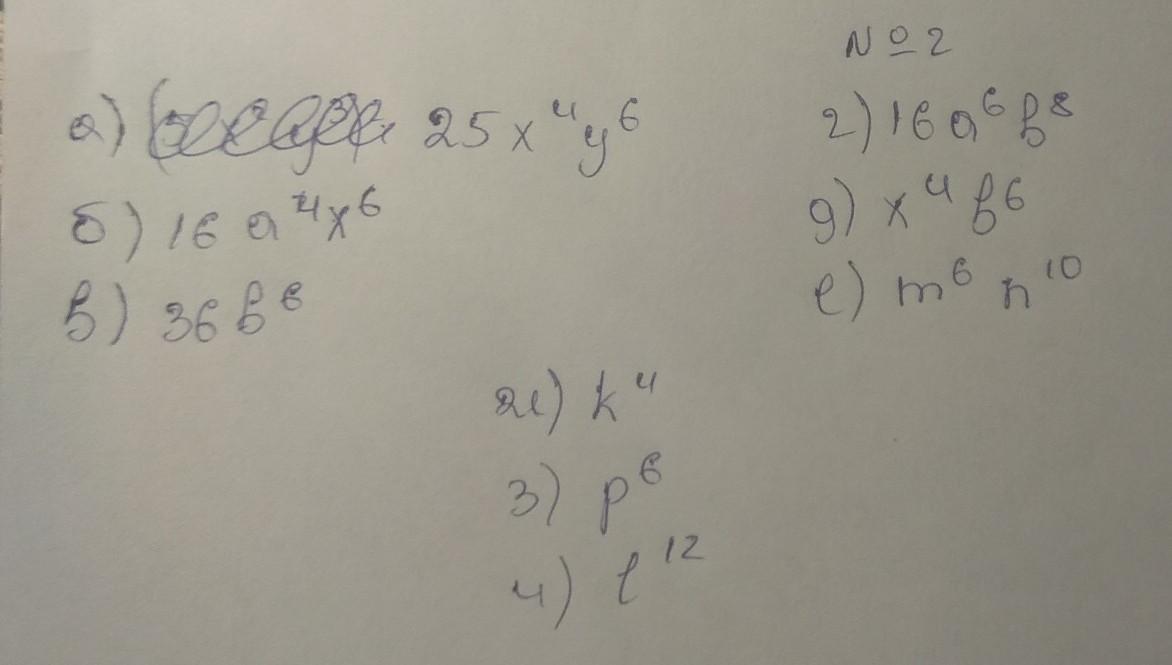 № 2
а) 25x⁴y⁶
б) 16a⁴x⁶
в) 36b⁶
г) 16a⁶b⁸
д) x⁴b⁶
е) m⁶n¹⁰
ж) k⁴
з) p⁶
и) t¹²